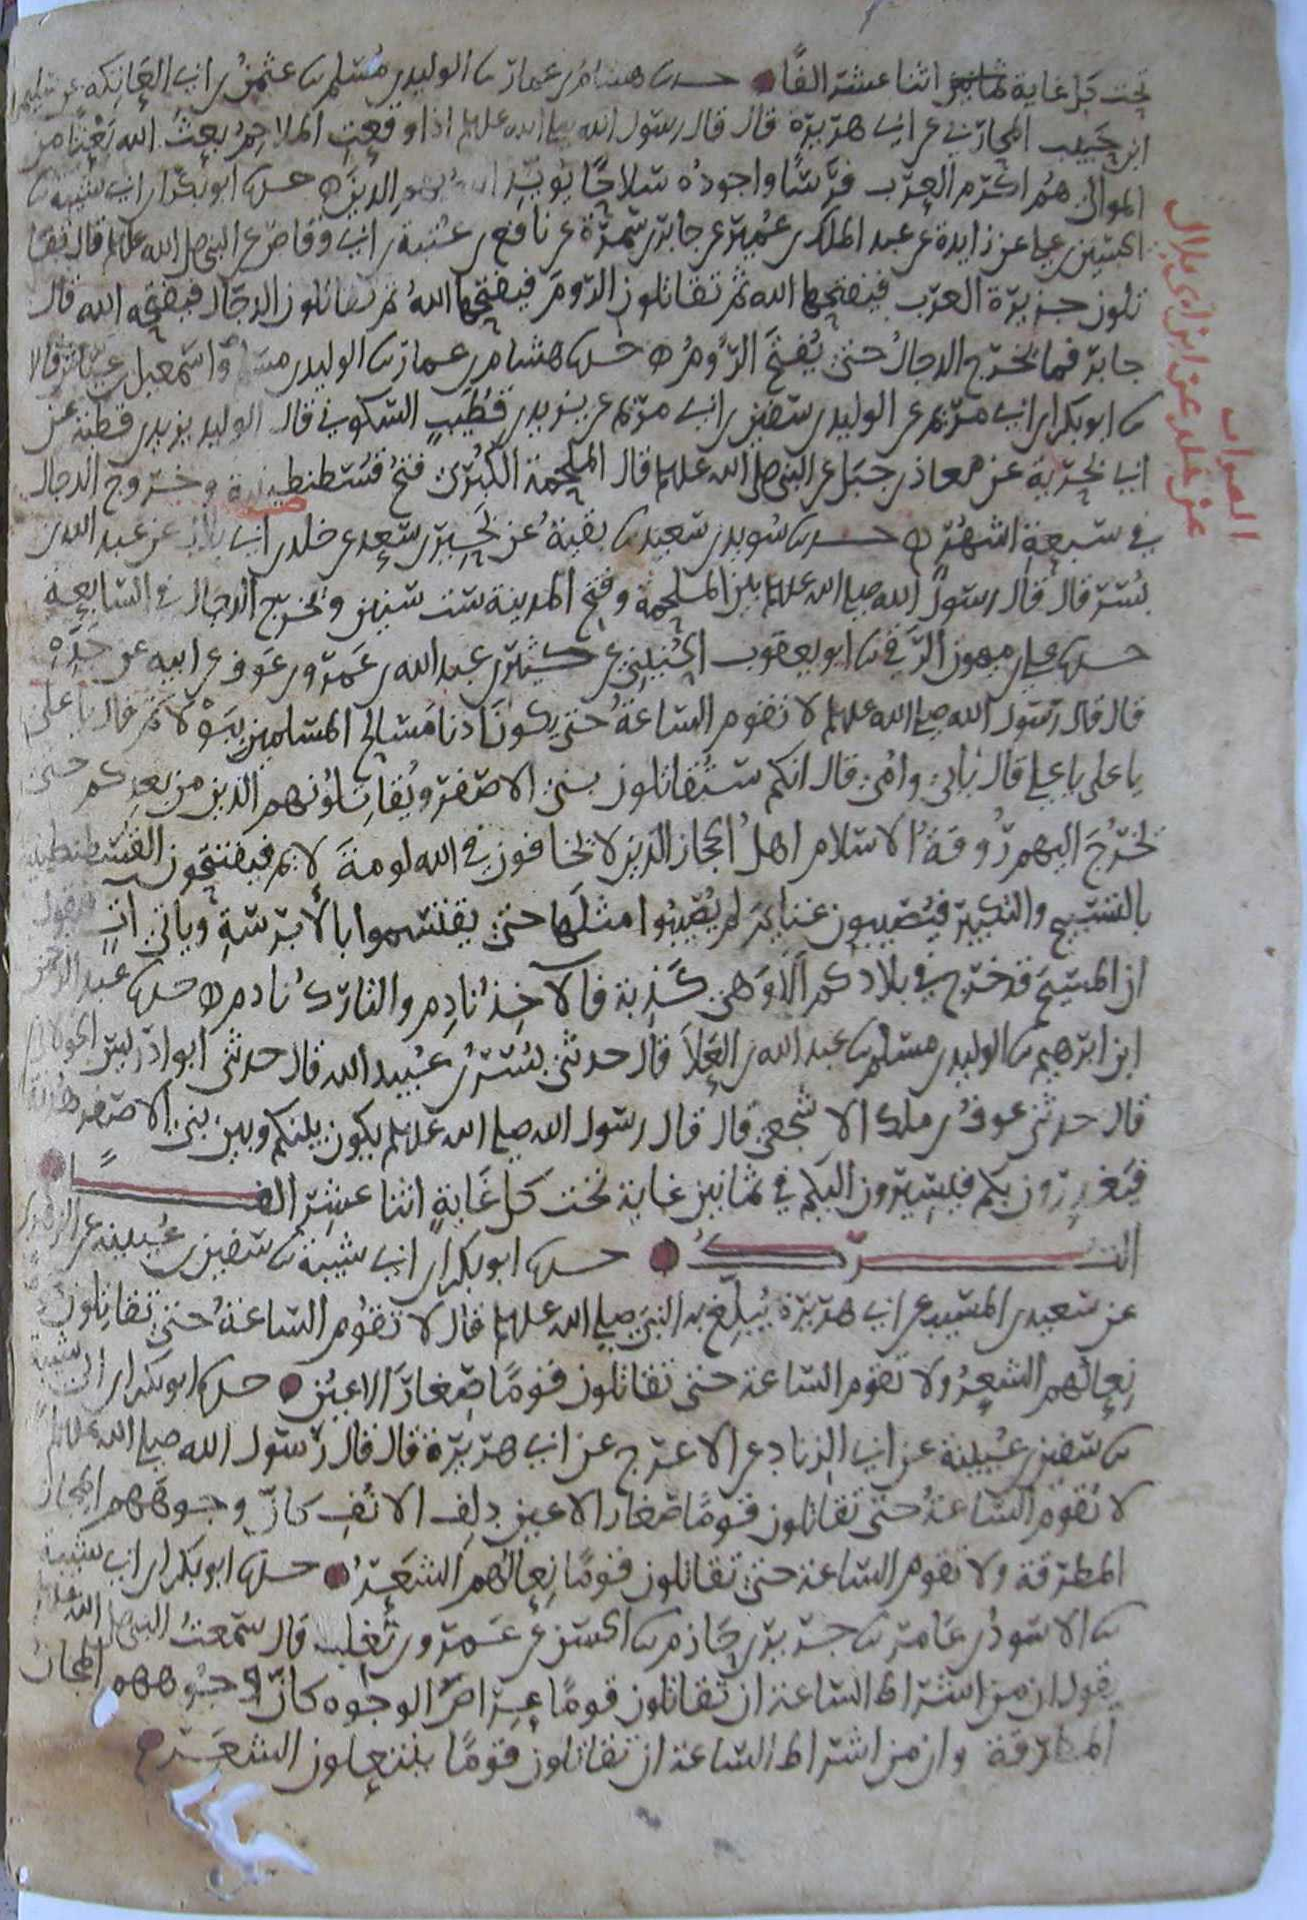 تحت كل غاية اثنا عشر الفا حدثنا هشام بن عمار ثنا الوليد بن مسلم ثنا عثمن بن ابي العاتكه عن سليمن
ابن حبيب المحاربي عن ابي هريرة قال قال رسول الله صلى الله عليه وسلم اذا وقعت الملاحم بعث الله بعثا من
الموالي هم اكرم العرب فرسا واجوده سلاحا يويد الله بهم الدين حدثنا ابو بكر بن ابي شيبة ثنا
الحسين بن علي عن زايدة عن عبد الملك بن عمير عن جابر بن سمرة عن نافع بن عتبة بن ابي وقاص عن النبي صلى الله عليه وسلم قال تقا
تلون جزيرة العرب فيفتحها الله ثم تقاتلون الروم فيفتحها الله ثم تقاتلون الدجال فيفتحه الله قال
جابر فما يخرج الدجال حتى يفتح الروم حدثنا هشام بن عمار ثنا الوليد بن مسلم واسمعيل بن عياش قالا
ثنا ابو بكر بن ابي مريم عن الوليد بن سفين بن ابي مريم عن يزيد بن قطيب السكوني قال الوليد يزيد بن قطبة عن
ابي بحرية عن معاذ بن جبل عن النبي صلى الله عليه وسلم قال الملحمة الكبرى فتح قسطنطينية وخروج الدجال
في سبعة اشهر حدثنا سويد بن سعيد ثنا بقية عن بحير بن سعد عن خلد بن ابي بلال عن عبد الله بن
بسر قال قال رسول الله صلى الله عليه وسلم بين الملحمة وفتح المدينة ست سنين ويخرج الدجال في السابعة
حدثنا علي بن ميمون الرقي ثنا ابو يعقوب الحنيني عن كثير بن عبد الله بن عمرو بن عوف عن ابيه عن جده
قال قال رسول الله صلى الله عليه وسلم لا تقوم الساعة حتى يكون ادنا مسالح المسلمين ببولا ثم قال يا علي
يا علي يا علي قال بابي وامي قال انكم ستقاتلون بني الاصفر ويقاتلونهم الذين من بعدكم حتى
تخرج اليهم روقة الاسلام اهل الحجاز الذين لا يخافون في الله لومة لايم فيفتتحون القسطنطينية
بالتسبيح والتكبير فيصيبون غنايم لم يصيبوا مثلها حتى يقتسموا بالاترسة وياتي ات فيقول
ان المسيح قد خرج في بلادكم الا وهي كذبة فالاخذ نادم والتارك نادم حدثنا عبد الرحمن
ابن ابرهيم ثنا الوليد بن مسلم ثنا عبد الله بن العلا قال حدثني بسر بن عبيد الله قال حدثني ابو ادريس الخولاني
قال حدثني عوف بن ملك الاشجعي قال قال رسول الله صلى الله عليه وسلم يكون بينكم وبين بني الاصفر هدنة
فيغدرون بكم فيسيرون اليكم في ثمانين غاية تحت كل غاية اثنا عشر الفا
الترك حدثنا ابو بكر بن ابي شيبة ثنا سفين بن عيينة عن الزهري
عن سعيد بن المسيب عن ابي هريرة يبلغ به النبي صلى الله عليه وسلم قال لا تقوم الساعة حتى تقاتلون
نعالهم الشعر ولا تقوم الساعة حتى تقاتلون قوما صغار الاعين حدثنا ابو بكر بن ابي شيبة
ثنا سفين بن عيينة عن ابي الزناد عن الاعرج عن ابي هريرة قال قال رسول الله صلى الله عليه وسلم
لا تقوم الساعة حتى تقاتلون قوما صغار الاعين ذلف الانف كان وجوههم المجان
المطرقة ولا تقوم الساعة حتى تقاتلون قوما نعالهم الشعر حدثنا ابو بكر بن ابي شيبة
ثنا الاسود بن عامر ثنا جرير بن حازم ثنا الحسن عن عمرو بن تغلب قال سمعت النبي صلى الله عليه وسلم
يقول ان من اشراط الساعة ان تقاتلون قوما عراض الوجوه كان وجوههم المجان
المطرقة وان من اشراط الساعة ان تقاتلون قوما ينتعلون الشعر
الصواب
عن خلد عن ابن ابي بلال